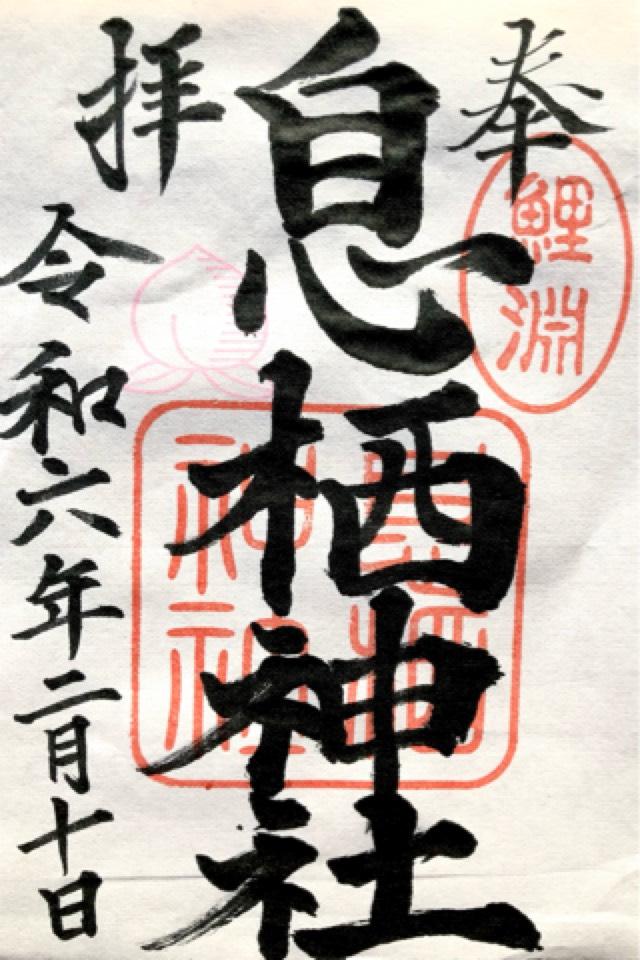 奉
鯉淵
息栖神社
息栖
神社
拝
令和六年二月十日